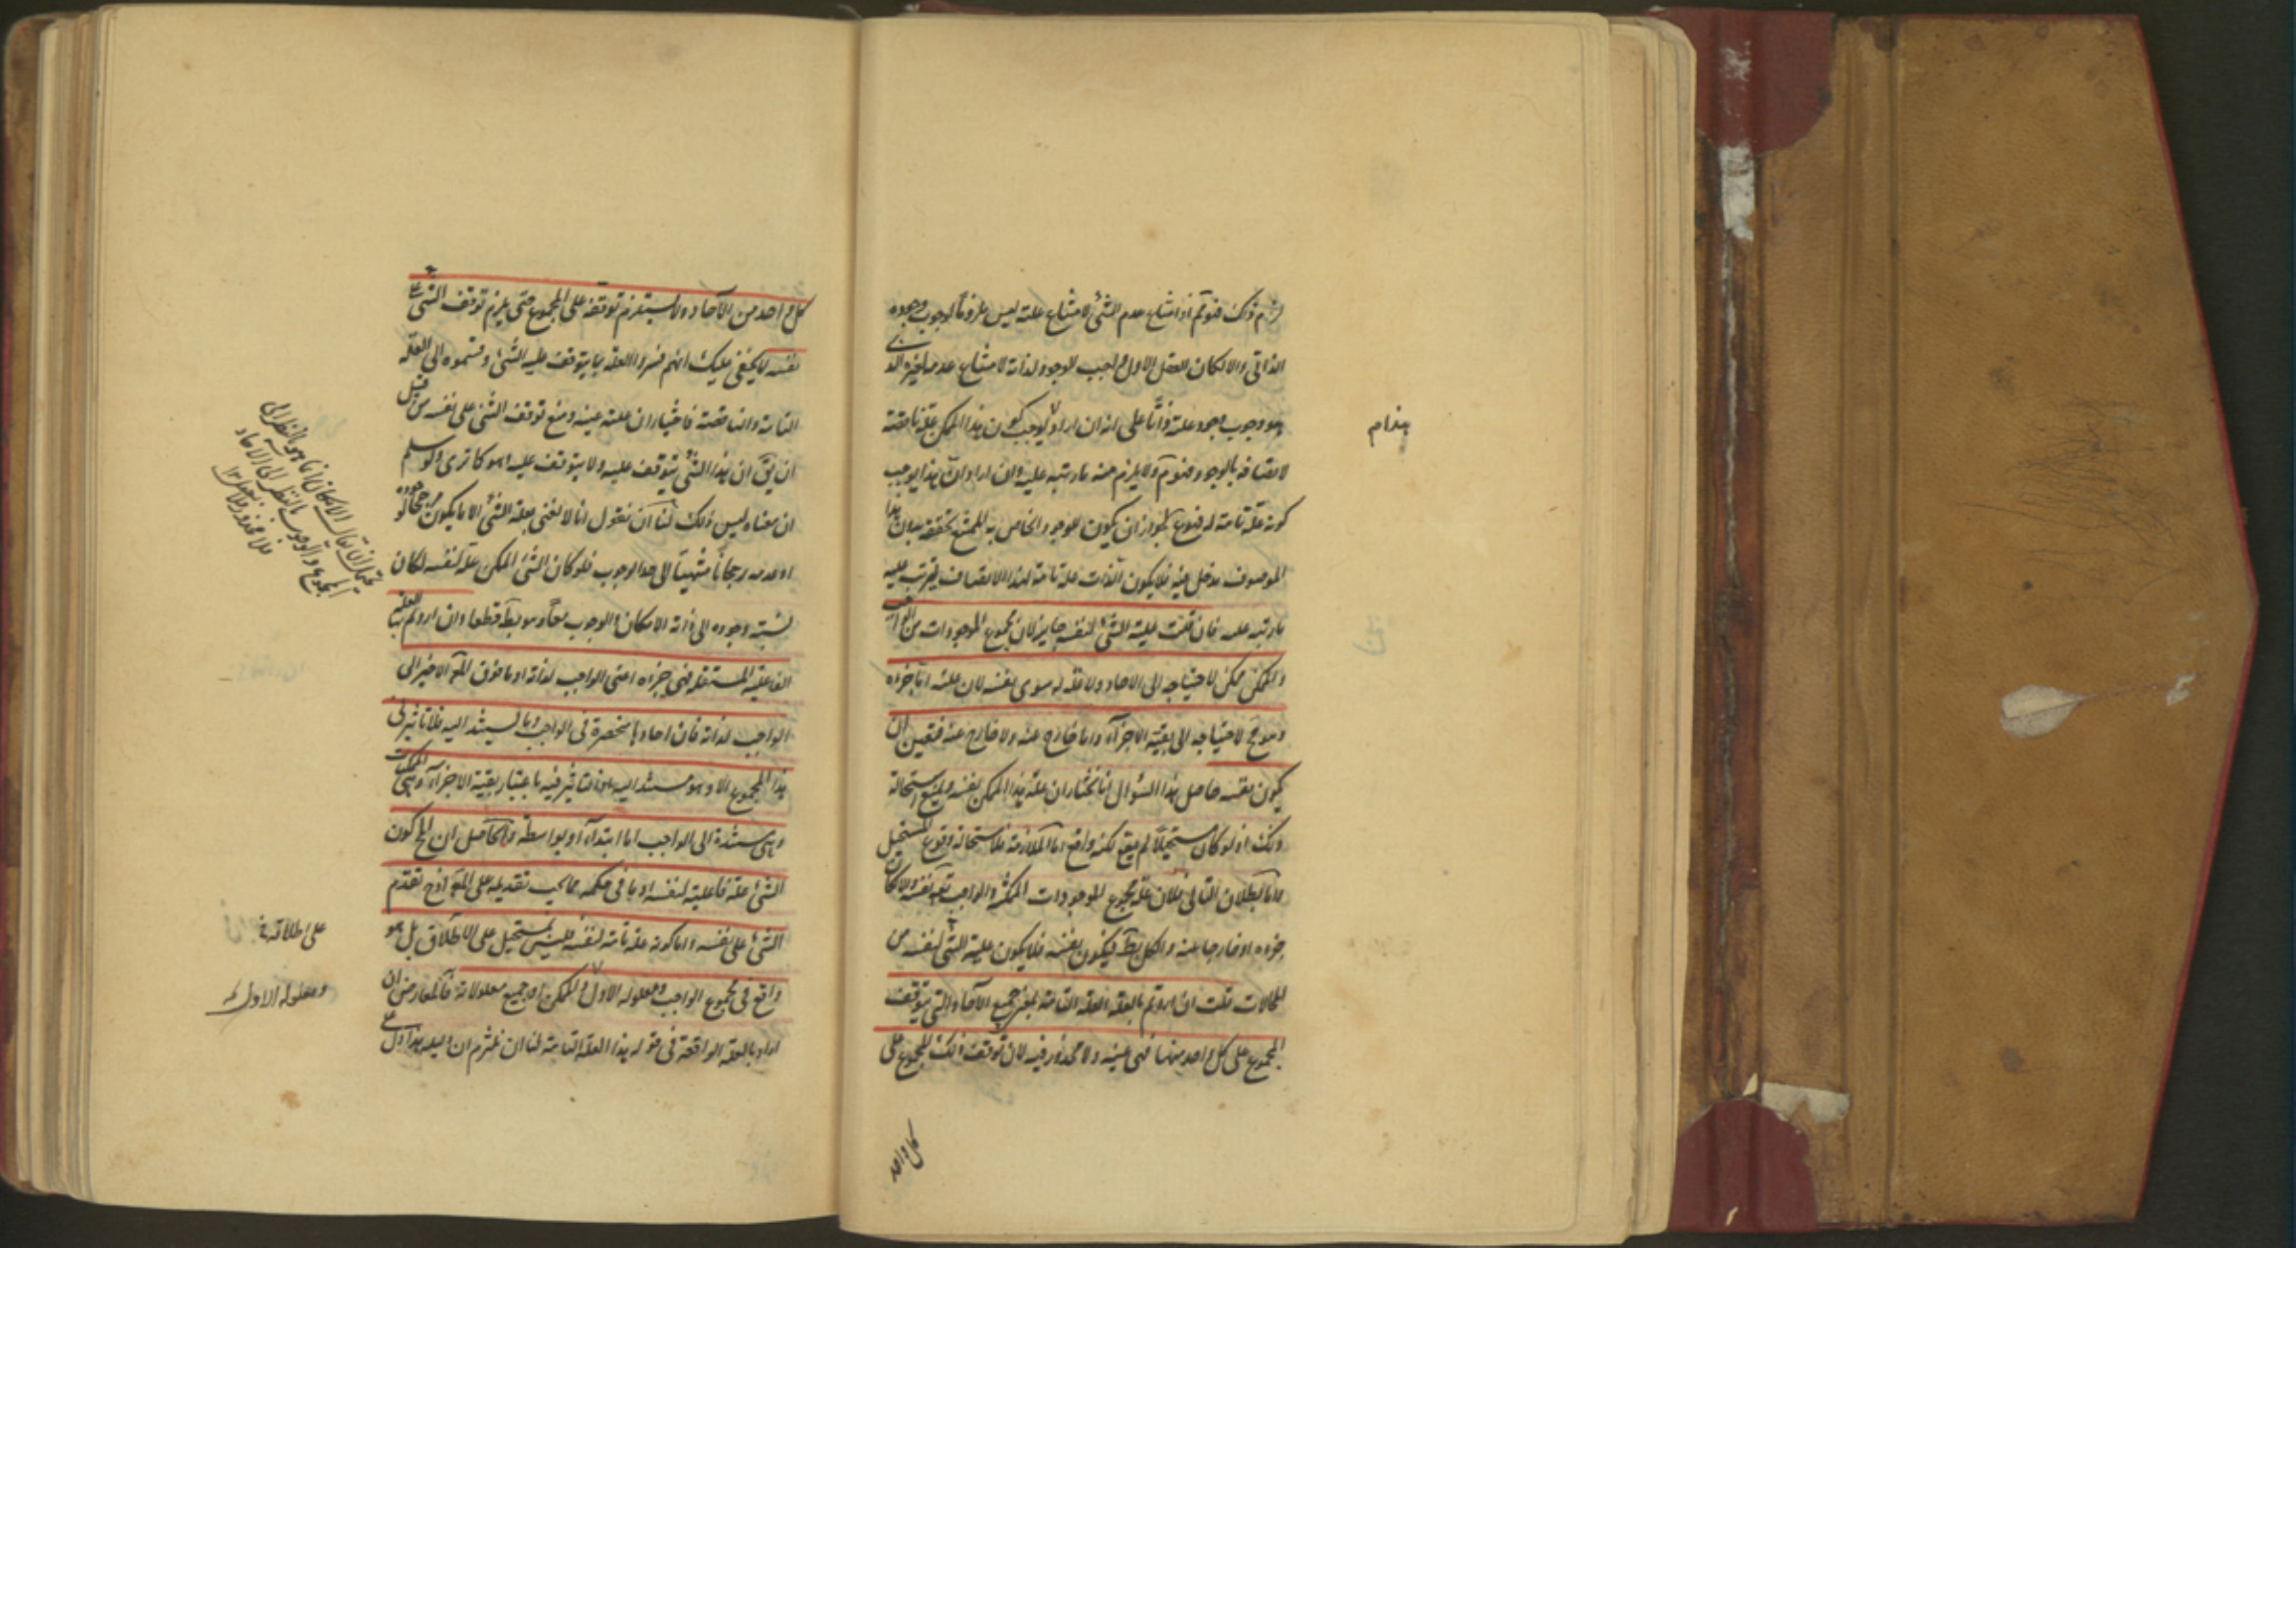 لزم ذلك فنوتم اذ امتناع عدم الشئ لامتناع علته ليس ملزوما لوجوب وجوده
الذاتى والا لكان العقل الاول واجب الوجود لذاته لامتناع عدمه
وجوب وجود علته على انه ان اراد كون هذا الممكن علة ناقصة
لاتصافه بالوجود ولا يلزم منه ما رتبه عليه وان اراد ان هذا يوجب
كونه علة تامة له فممنوع لجواز ان يكون للوجود الخاص به الممتنع تحققه بدون هذا
الموصوف مدخل فيه فلا يكون الذات علة تامة لهذا الاتصاف فيترتب عليه
ما رتبه عليه فان قلت علية الشئ لنفسه جايز لان مجموع الموجودات من الواجب
والممكن ممكن لاحتياجه الى الاحاد ولا علة له سوى نفسه لان علته اما جزءه
وهو مح لاحتياجه الى بقية الاجزاء واما خارج عنه ولا خارج عنه فتعين ان
يكون نفسه حاصل هذا السؤال انا نختار ان علة هذا الممكن نفسه ونمنع استحالة
ذلك اذ لو كان مستحيلا لم يقع لكنه واقع اما الملازمة فلاستحالة وقوع المستحيل
واما بطلان التالى فلان علة مجموع الموجودات الممكنة والواجب نفسه والا لكان
جزءه او خارجا عنه والكل بط فيكون نفسه فلا يكون علية الشئ لنفسه من
المحالات قلت ان اردتم بالعلة العلة التامة بمعنى جميع الآحاد التى يتوقف
المجموع على كل واحد منها فهى عينه ولا محذور فيه لان توقف ذلك المجموع على
كل واحد
بهذا م
كل واحد من الآحاد ولا يستلزم توقفه على المجموع حتى يلزم توقف الشئ على
نفسه لا يخفى عليك انهم فسروا العلة بما يتوقف عليه الشئ وقسموه الى العلة
التامة والناقصة فاختيار ان علته عينه ومنع توقف الشئ على نفسه من قبيل
ان يق ان هذا الشئ يتوقف عليه ولا يتوقف عليه وهو كما ترى ولو سلم
ان معناه ليس ذلك لنا ان نقول انا لا نعنى بعلة الشئ الا ما يكون مرجحا لوجوده
او عدمه رجحانا منتهيا الى حد الوجوب فلو كان الشئ الممكن علة لنفسه لكان
نسبة وجوده الى ذاته الامكان والوجوب معا وهو بط قطعا وان اردتم بها العلة
الفاعلية المستقلة فهى جزءه اعنى الواجب لذاته او ما فوق المع الاخير الى
الواجب لذاته فان احادها منحصرة فى الواجب وما يستند اليه فلا تاثير فى
هذا المجموع الا وهو مستند اليه اذ التاثير فيه باعتبار بقية الاجزاء وهى الممكنات
وهى مستندة الى الواجب اما ابتداء او بواسطة والحاصل ان المح كون
الشئ علة فاعلية لنفسه او ما فى حكمه مما يجب تقديمه على المع اذ ح تقدم
الشئ على نفسه واما كونه علة تامة لنفسه فليس بمستحيل على الاطلاق بل هو
واقع فى مجموع الواجب ومعلوله الاول الممكن او جميع معلولاته فالمعارض ان
اراد بالعلة الواقعة فى قوله هذا العلة التامة لنا ان نلتزم ان دليله هذا دل على
الا ان يقال الامكان انما هو بالنظر الى
المجموع والوجوب بالنظر الى الآحاد
فلا محذور
على اطلاقه
ومعلوله الاول